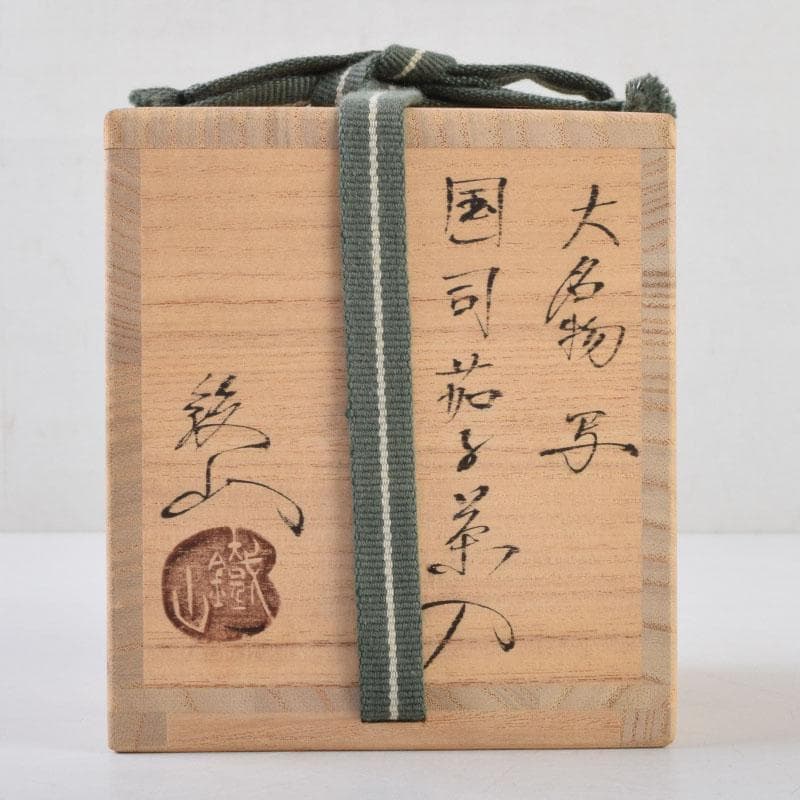 大名物 写
国司茄子茶入
鉄山
鐵山